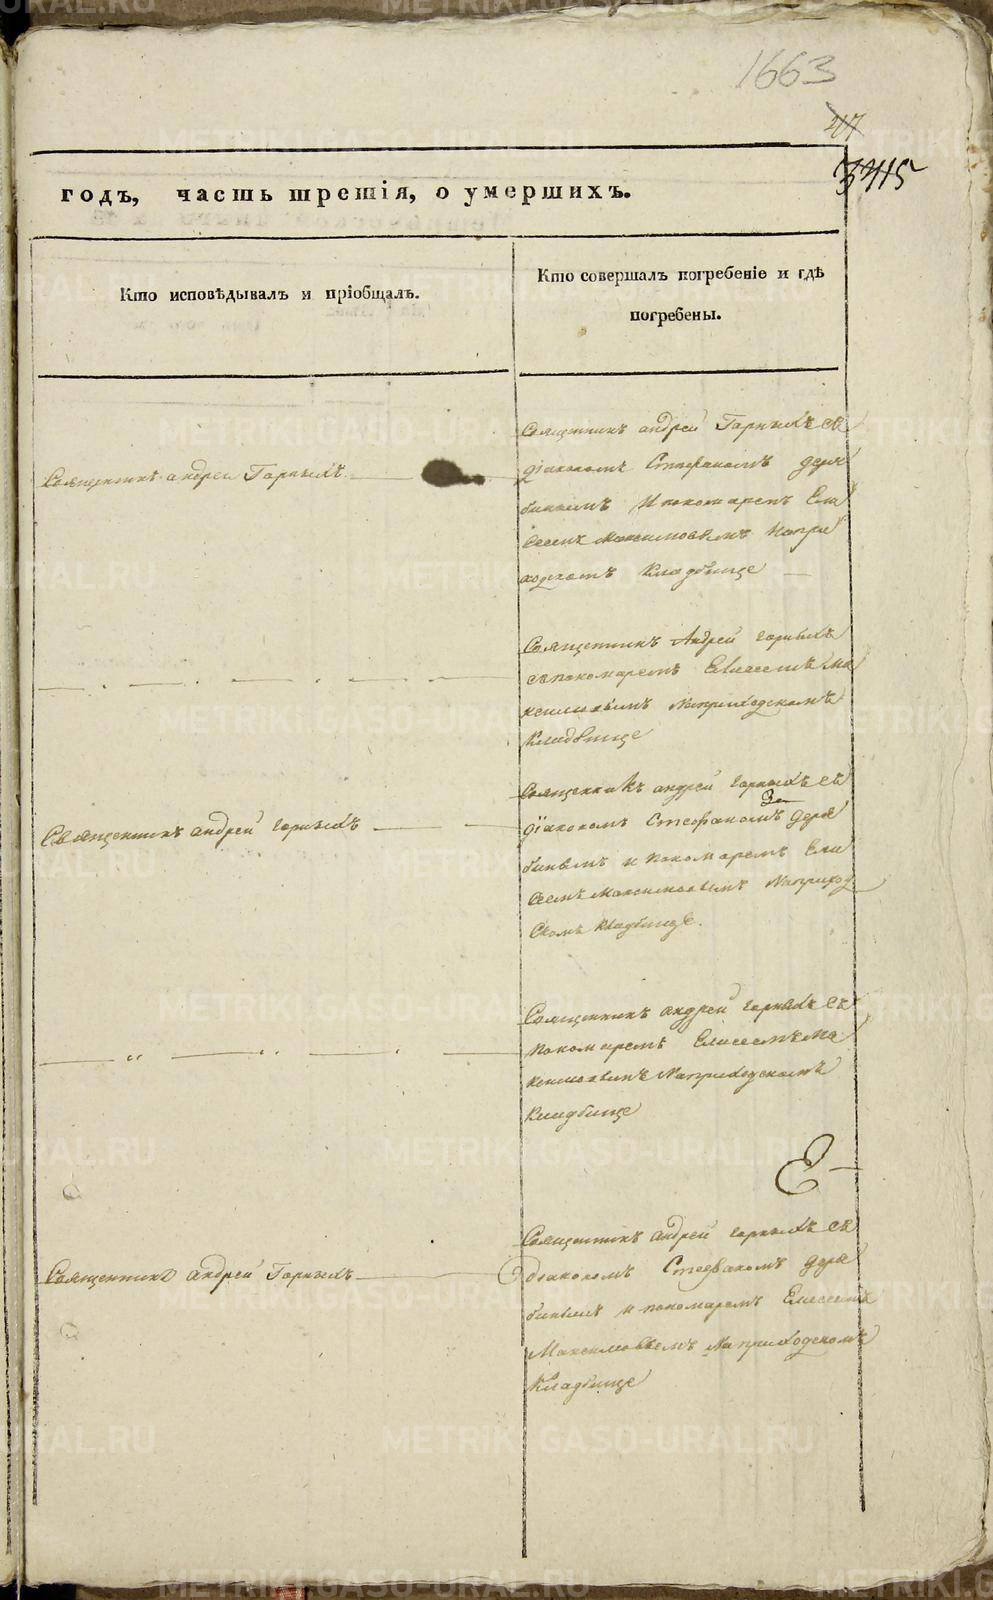 1663
47
3415
годъ, часть третія, о умершихъ.
Кто исповѣдывалъ и пріобщалъ.
Кто совершалъ погребеніе и гдѣ
погребены.
Священникъ андрей Горныхъ
Священникъ андрей Горныхъ съ
діакономъ Стефаномъ Деря
бинымъ И пономаремъ Ели
сеемъ Максимовымъ Напри
ходскомъ Кладбище
Священникъ Андрей горныхъ
съпономаремъ Елисеемъ Ма
ксимовымъ Наприходскомъ
Кладбище
Священникъ андрей горныхъ
Священникъ андрей горныхъ съ
діакономъ Стефаномъ Деря
бинымъ и пономаремъ Ели
сеемъ Максимовымъ Наприход
скомъ кладбище.
Священникъ андрей горныхъ съ
пономаремъ Елисеемъ Ма
ксимовымъ Наприходскомъ
Кладбище
Священникъ андрей Горныхъ
Священникъ андрей горныхъ съ
діакономъ Стефаномъ Деря
бинымъ и пономаремъ Елисеемъ
Максимовымъ Наприходскомъ
Кладбище
METRIKI.GASO-URAL.RU